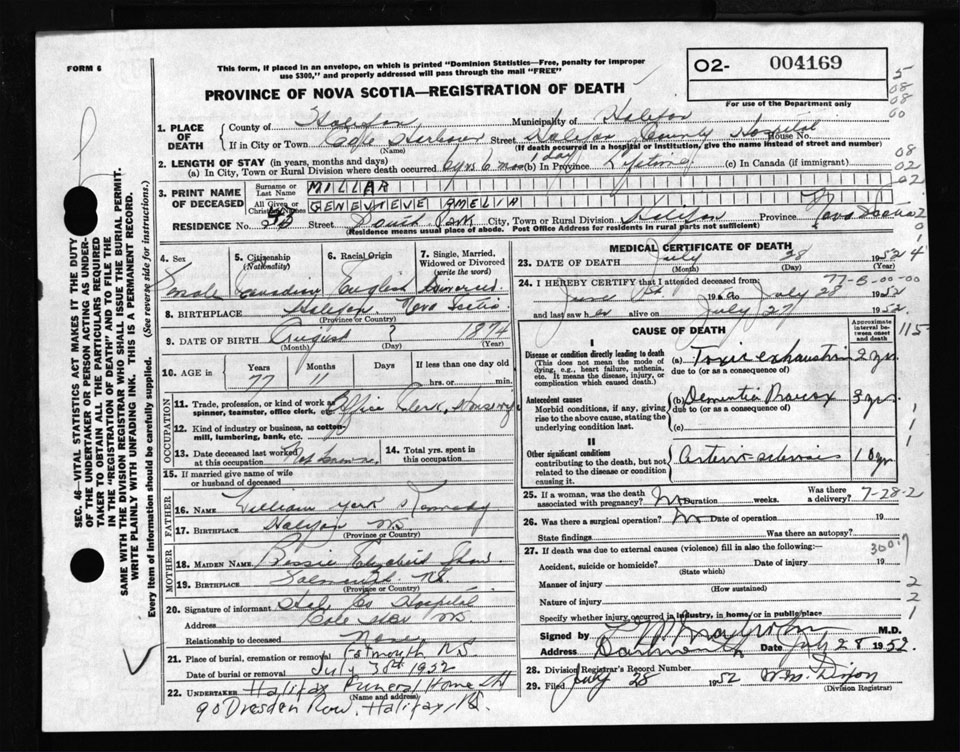 FORM 6
This form, if placed in an envelope, on which is printed "Dominion Statistics—Free, penalty for improper
use $300," and properly addressed will pass through the mail "FREE"
O2- 004169
For use of the Department only
PROVINCE OF NOVA SCOTIA—REGISTRATION OF DEATH
5
08
08
00
1. PLACE OF DEATH
County of Halifax Municipality of Halifax
If in City or Town Cole Harbour Street Halifax County Hospital House No.
(Name) (If death occurred in a hospital or institution, give the name instead of street and number)
2. LENGTH OF STAY (in years, months and days)
(a) In City, Town or Rural Division where death occurred 6 yrs 6 mon 1 day (b) In Province Lifetime (c) In Canada (if immigrant)
08
02
02
3. PRINT NAME OF DECEASED
Surname or Last Name MILLAR
All Given or Christian Names GENEVIEVE AMELIA
RESIDENCE No. Street South Park City, Town or Rural Division Halifax Province Nova Scotia
(Residence means usual place of abode. Post Office Address for residents in rural parts not sufficient)
2
0
1
4. Sex Female
5. Citizenship (Nationality) Canadian
6. Racial Origin English
7. Single, Married, Widowed or Divorced (write the word) Divorced
8. BIRTHPLACE Halifax Nova Scotia
(Province or Country)
9. DATE OF BIRTH August ? 1874
(Month) (Day) (Year)
10. AGE in Years 77 Months 11 Days ? If less than one day
hrs. or min.
OCCUPATION
11. Trade, profession or kind of work as spinner, teamster, office clerk, etc. Office Clerk,
12. Kind of industry or business, as cotton-mill, lumbering, bank, etc.
13. Date deceased last worked at this occupation Not known
14. Total yrs. spent in this occupation
15. If married give name of wife or husband of deceased
FATHER
16. NAME William York Kennedy
17. BIRTHPLACE Halifax NS
(Province or Country)
MOTHER
18. MAIDEN NAME Bessie Elizabeth Shaw
19. BIRTHPLACE Falmouth NS
(Province or Country)
20. Signature of informant Halif Co Hospital
Address Cole Hbr NS
Relationship to deceased None
21. Place of burial, cremation or removal Falmouth N.S.
Date of burial or removal July 30th 1952
22. UNDERTAKER Halifax Funeral Home Ltd
(Name and address)
90 Dresden Row, Halifax, N.S.
MEDICAL CERTIFICATE OF DEATH
23. DATE OF DEATH July 28 1952
(Month) (Day)
24
24. I HEREBY CERTIFY that I attended deceased from:
77-5-00-00
June 1st 19 to July 28 1952
and last saw her alive on July 27 1952
CAUSE OF DEATH
Approximate interval between onset and death
115
I
Disease or condition directly leading to death
(This does not mean the mode of dying, e.g., heart failure, asthenia, etc. It means the disease, injury, or complication which caused death.)
(a) Toxic exhaustion 2 yrs.
due to (or as a consequence of)
Antecedent causes
Morbid conditions, if any, giving rise to the above cause, stating the underlying condition last.
(b) Dementia Praecox 3 yrs.
due to (or as a consequence of)
(c)
1
1
1
II
Other significant conditions
contributing to the death, but not related to the disease or condition causing it.
Arterio-sclerosis 10 yr
25. If a woman, was the death associated with pregnancy? No Duration weeks. Was there a delivery?
7-28-2
26. Was there a surgical operation? No Date of operation 19
State findings Was there an autopsy?
27. If death was due to external causes (violence) fill in also the following:—
Accident, suicide or homicide? Date of injury 19
(State which)
Manner of injury
(How sustained)
Nature of injury
Specify whether injury occurred in industry, in home, or in public place
2
2
1
Signed by M.D.
Address Dartmouth Date July 28 1952.
28. Division Registrar's Record Number
29. Filed July 28 1952 Wm. Dixon
(Division Registrar)
SEC. 46—VITAL STATISTICS ACT MAKES IT THE DUTY
OF THE UNDERTAKER OR PERSON ACTING AS UNDER-
TAKER TO OBTAIN ALL THE PARTICULARS REQUIRED
IN THE "REGISTRATION OF DEATH" AND TO FILE THE
SAME WITH THE DIVISION REGISTRAR WHO SHALL ISSUE THE BURIAL PERMIT.
WRITE PLAINLY WITH UNFADING INK. THIS IS A PERMANENT RECORD.
Every item of information should be carefully supplied. (See reverse side for instructions.)